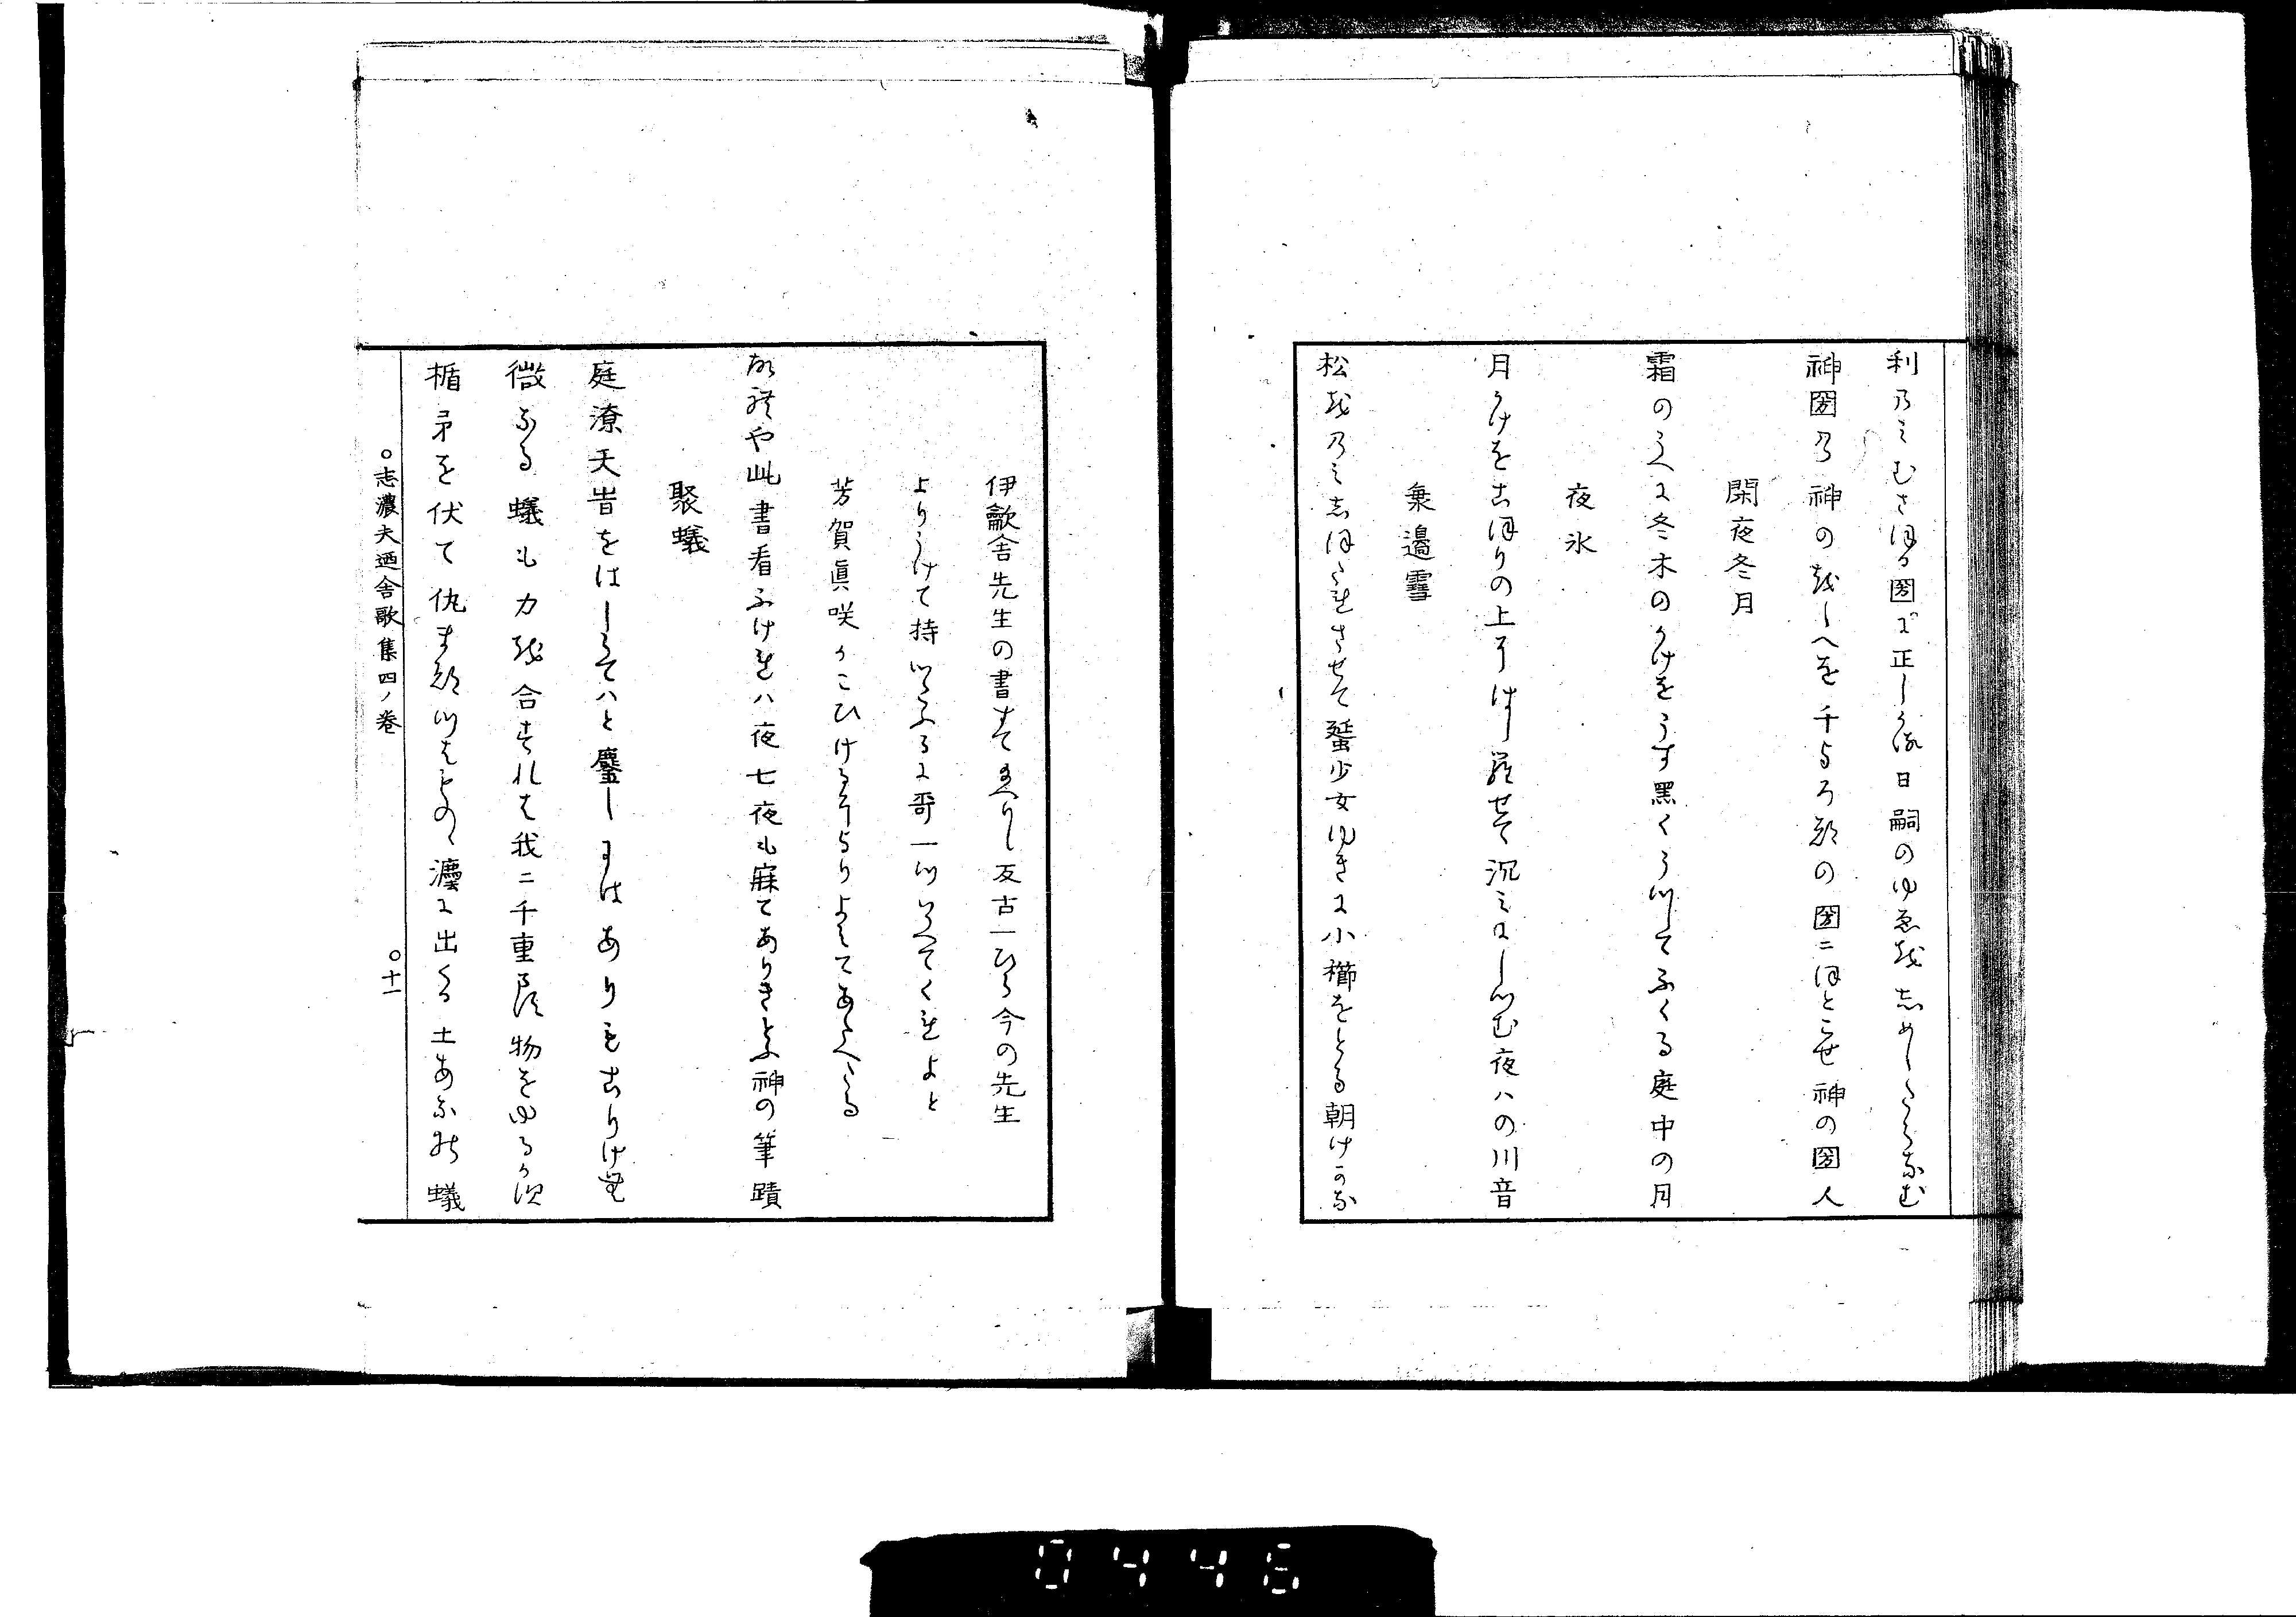 利乃ミむさほる圀に正しかる日嗣のゆゑ越志めしたらなむ
神圀乃神の越しへを千与ろ都の圀ニほとこせ神の圀人
閑夜冬月
霜のうへに冬木のかけをうす黒くうつしてふくる庭中の月
夜氷
月かけをこほりの上にはしらせて沈みにしつむ夜ハの川音
巣邉雪
松越乃ミ志ほたれさせて蜑少女ゆきに小櫛をとる朝けかな
伊歙舎先生の書すてまへりし反古一ひら今の先生
よりうけて持つたふるに哥一つゝへてくれよと
芳賀眞咲かこひけるにより よみてあたへたる
や此書看ふけれハ夜七夜も寐てありきとふ神の筆蹟
聚蟻
庭潦天皆をはしらてハと鏖しにはありもこりけむ
微なる蟻も力越合すれは我ニ千重物をゆるかす
楯矛を伏て仇まつはもの鏖に出くる土あなの蟻
○志濃夫廼舎歌集四ノ巻 ○十一
0446